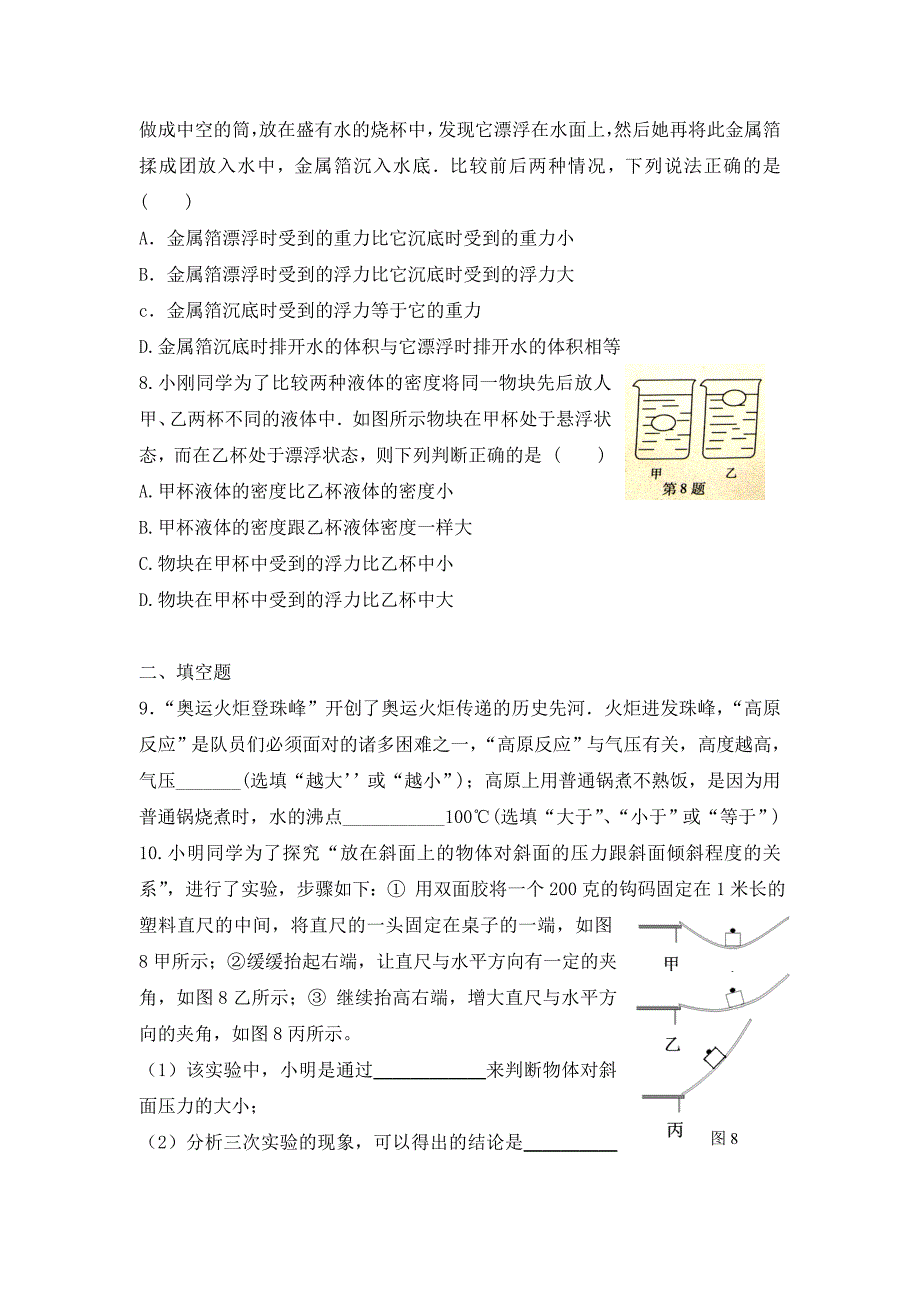 做成中空的筒，放在盛有水的烧杯中，发现它漂浮在水面上，然后她再将此金属箔
揉成团放入水中，金属箔沉入水底．比较前后两种情况，下列说法正确的是
(　　)
A．金属箔漂浮时受到的重力比它沉底时受到的重力小
B．金属箔漂浮时受到的浮力比它沉底时受到的浮力大
c．金属箔沉底时受到的浮力等于它的重力
D.金属箔沉底时排开水的体积与它漂浮时排开水的体积相等
8.小刚同学为了比较两种液体的密度将同一物块先后放人
甲、乙两杯不同的液体中．如图所示物块在甲杯处于悬浮状
态，而在乙杯处于漂浮状态，则下列判断正确的是 (　　)
甲 乙
第8题
A.甲杯液体的密度比乙杯液体的密度小
B.甲杯液体的密度跟乙杯液体密度一样大
C.物块在甲杯中受到的浮力比乙杯中小
D.物块在甲杯中受到的浮力比乙杯中大
二、填空题
9．“奥运火炬登珠峰”开创了奥运火炬传递的历史先河．火炬进发珠峰，“高原
反应”是队员们必须面对的诸多困难之一，“高原反应”与气压有关，高度越高，
气压_______(选填“越大’’或“越小”)；高原上用普通锅煮不熟饭，是因为用
普通锅烧煮时，水的沸点___________100℃(选填“大于”、“小于”或“等于”)
10.小明同学为了探究“放在斜面上的物体对斜面的压力跟斜面倾斜程度的关
系”，进行了实验，步骤如下：① 用双面胶将一个200克的钩码固定在1米长的
塑料直尺的中间，将直尺的一头固定在桌子的一端，如图
8甲所示；②缓缓抬起右端，让直尺与水平方向有一定的夹
角，如图8乙所示；③ 继续抬高右端，增大直尺与水平方
向的夹角，如图8丙所示。
（1）该实验中，小明是通过____________来判断物体对斜
面压力的大小；
（2）分析三次实验的现象，可以得出的结论是__________
甲
乙
丙
图8